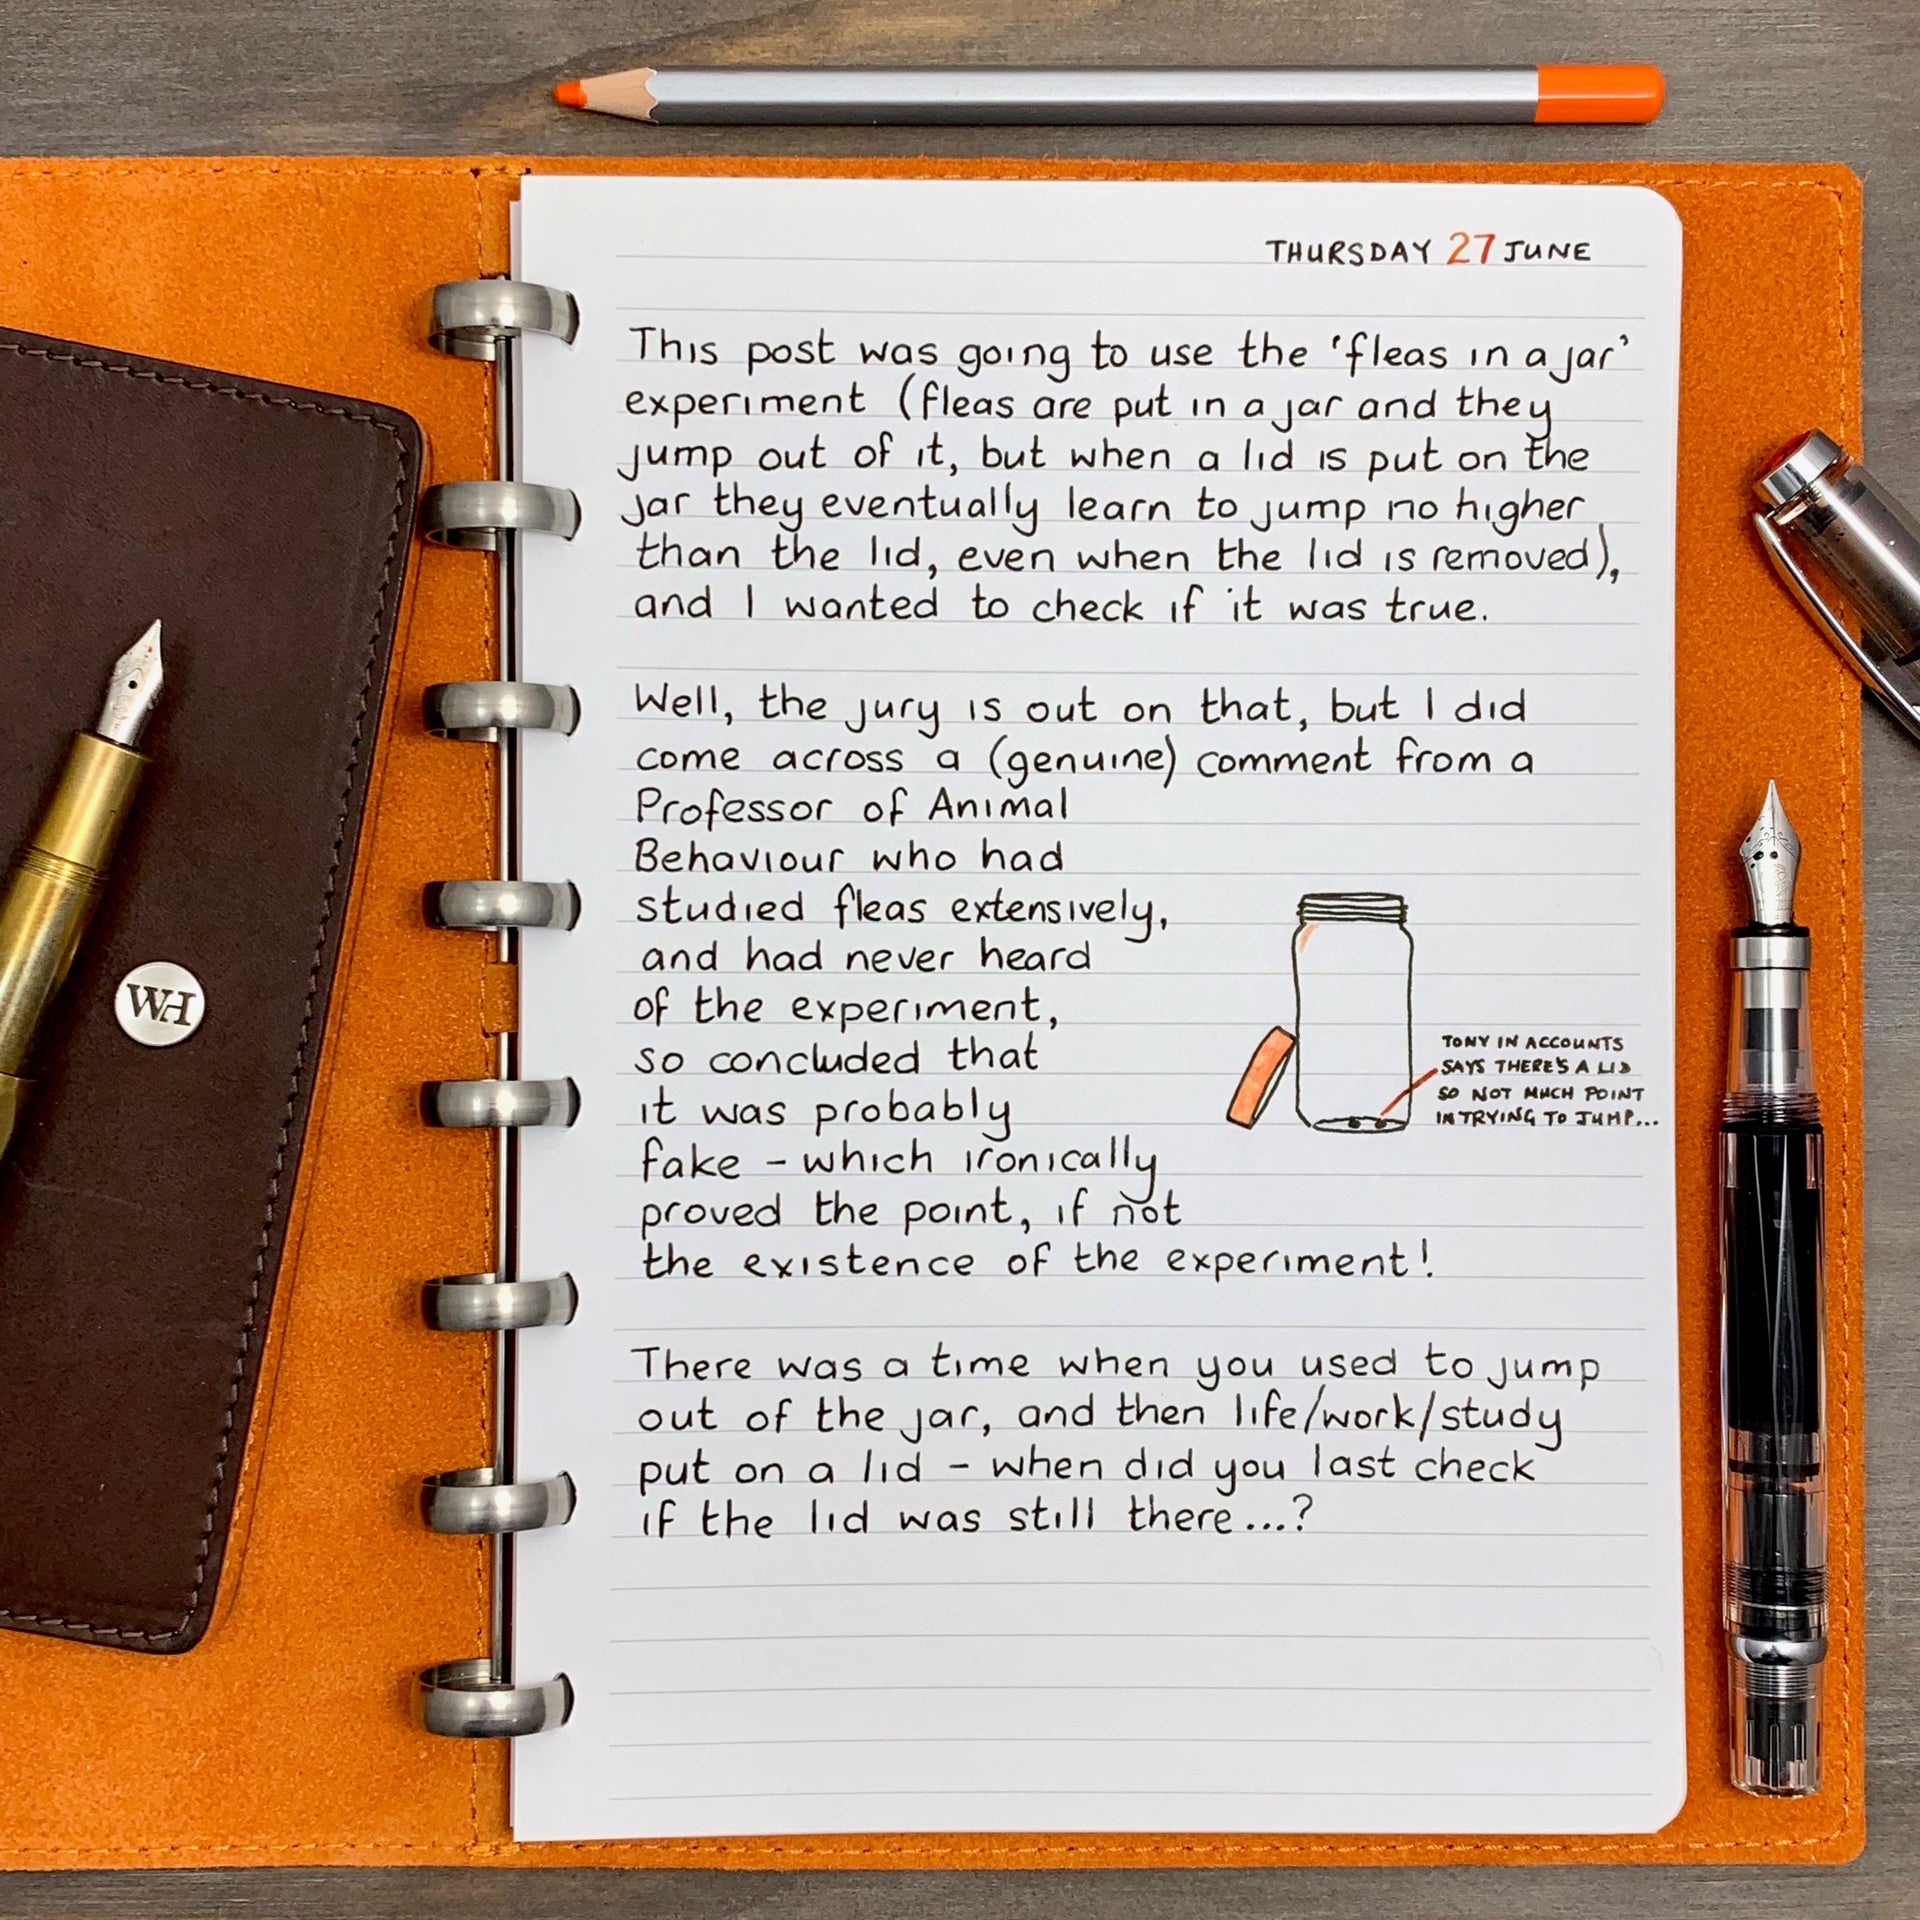 THURSDAY 27 JUNE
This post was going to use the 'fleas in a jar'
experiment (fleas are put in a jar and they
jump out of it, but when a lid is put on the
jar they eventually learn to jump no higher
than the lid, even when the lid is removed),
and I wanted to check if it was true.
Well, the jury is out on that, but I did
come across a (genuine) comment from a
Professor of Animal
Behaviour who had
studied fleas extensively,
and had never heard
of the experiment,
so concluded that
it was probably
fake - which ironically
proved the point, if not
the existence of the experiment!
TONY IN ACCOUNTS
SAYS THERE'S A LID
SO NOT MUCH POINT
IN TRYING TO JUMP...
There was a time when you used to jump
out of the jar, and then life/work/study
put on a lid - when did you last check
if the lid was still there...?
WH